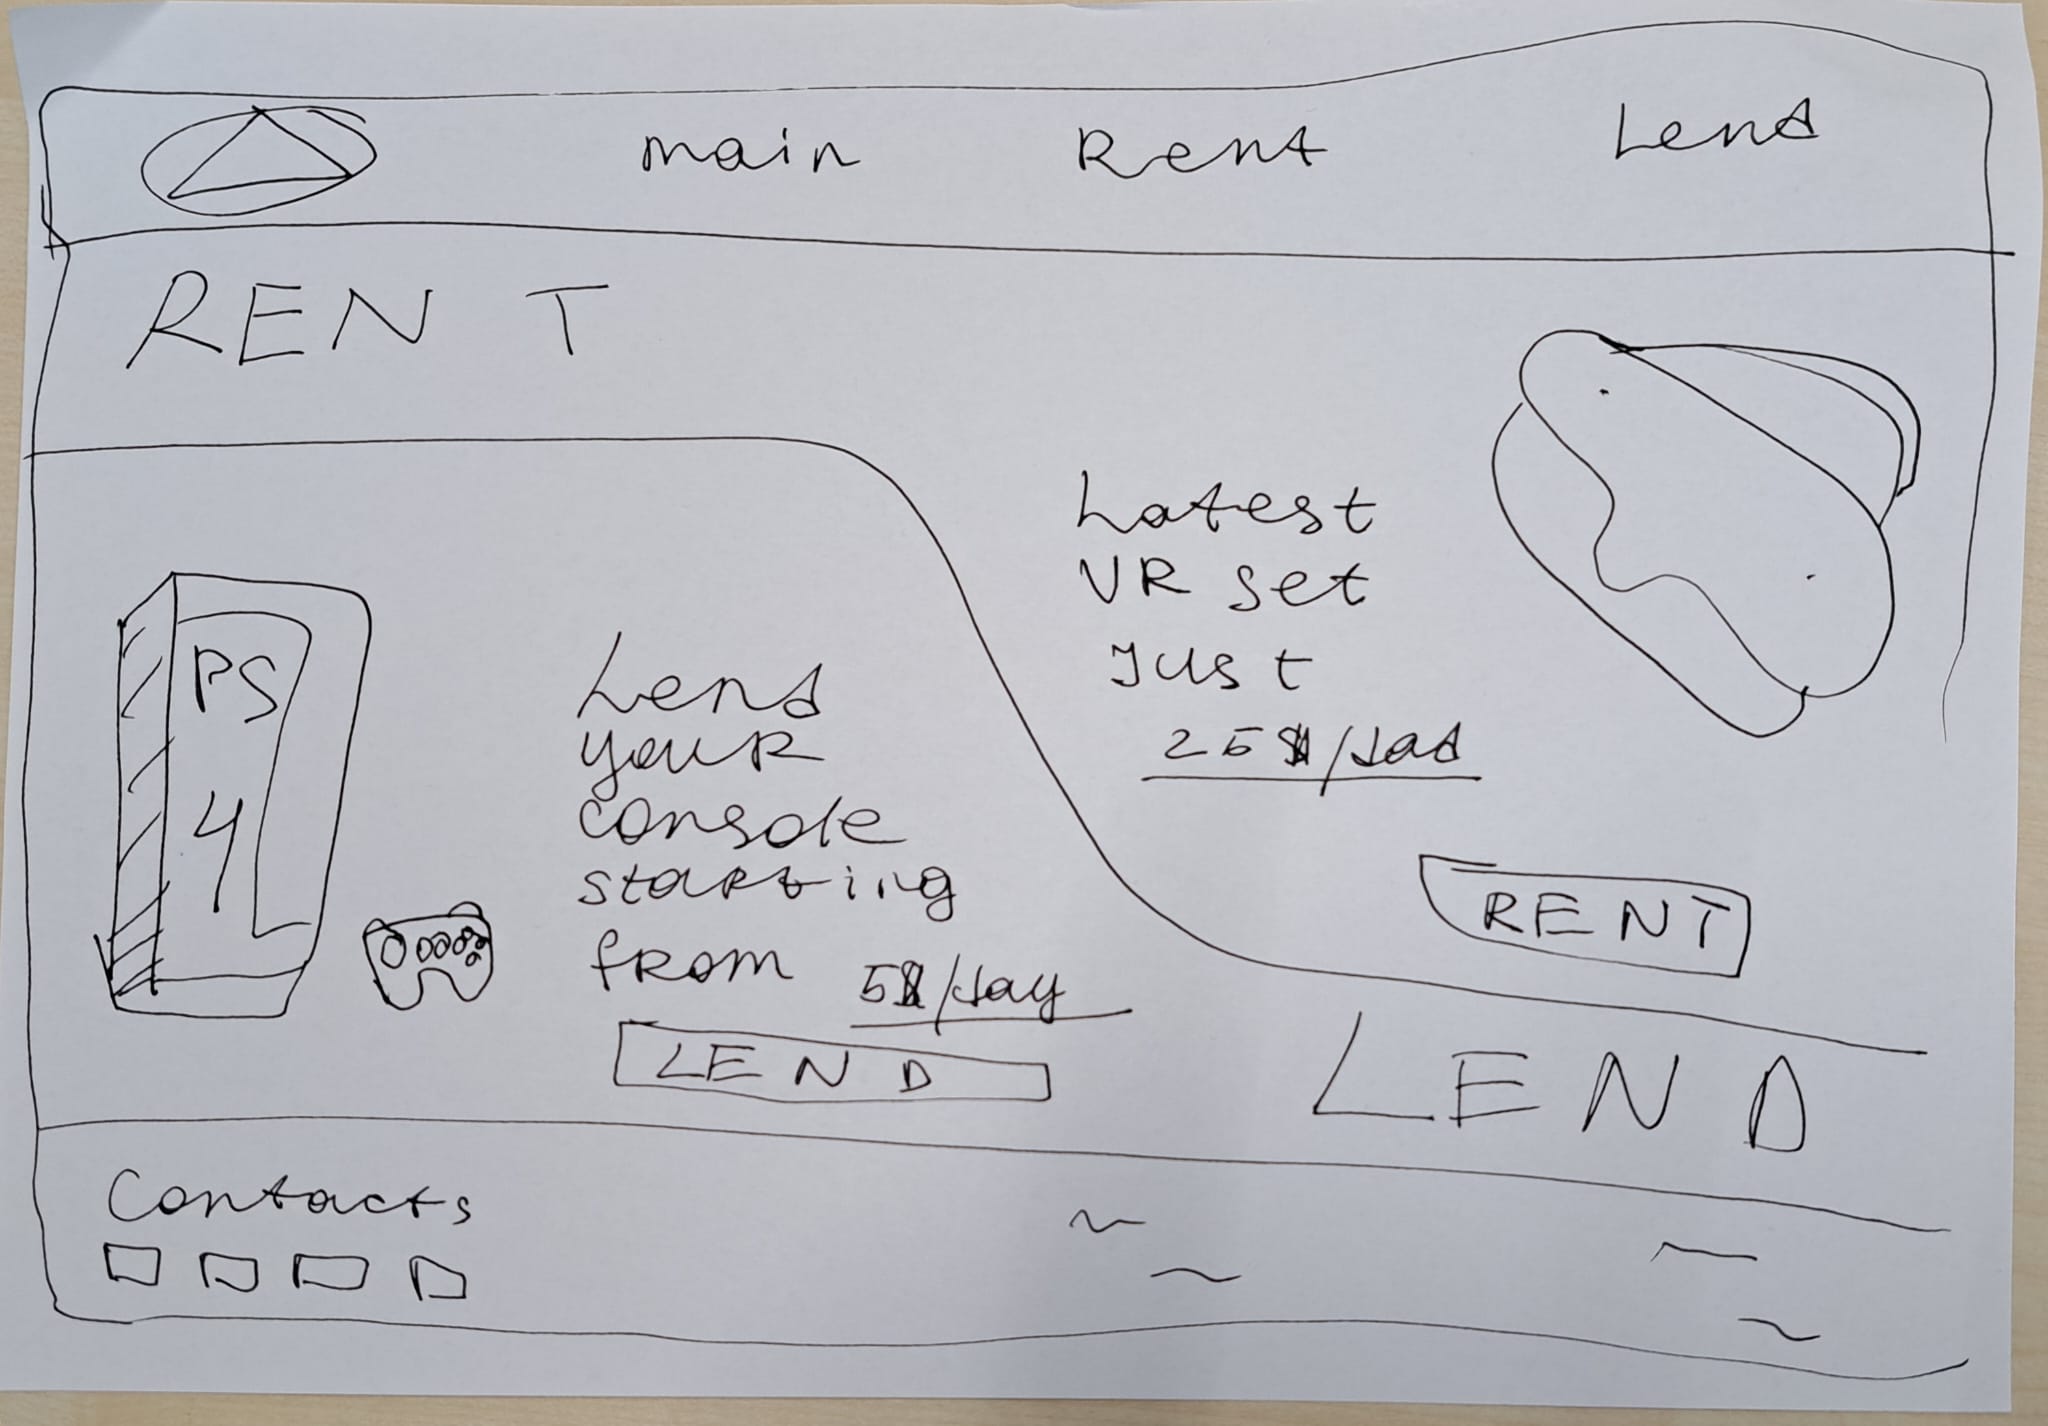 main Rent Lend
RENT
Latest
VR set
Just
25$/dad
RENT
PS
4
Lend
your
console
starting
from 5$/day
LEND
LEND
Contacts